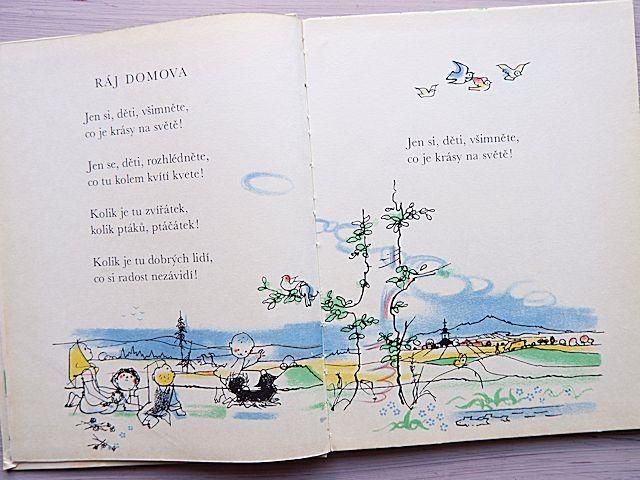 RÁJ DOMOVA
Jen si, děti, všimněte,
co je krásy na světě!
Jen se, děti, rozhlédněte,
co tu kolem kvítí kvete!
Kolik je tu zvířátek,
kolik ptáků, ptáčátek!
Kolik je tu dobrých lidí,
co si radost nezávidí!
Jen si, děti, všimněte,
co je krásy na světě!